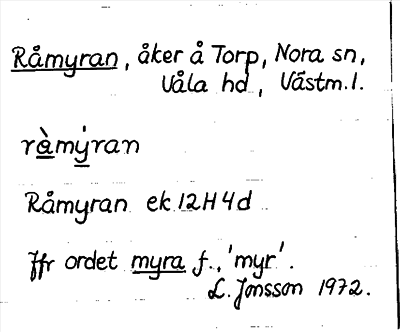 Råmyran, åker å Torp, Nora sn,
Våla hd, Västm.l.
rà̱mý̱ran
Råmyran ek.12H4d
Jfr ordet myra f., 'myr'.
L. Jonsson 1972.